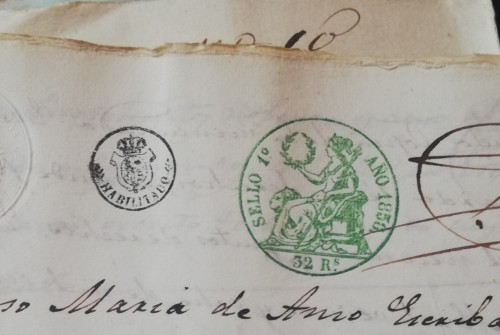 HABILITADO
SELLO 1º AÑO 1858
32 Rs
so Maria de Amo Escriba